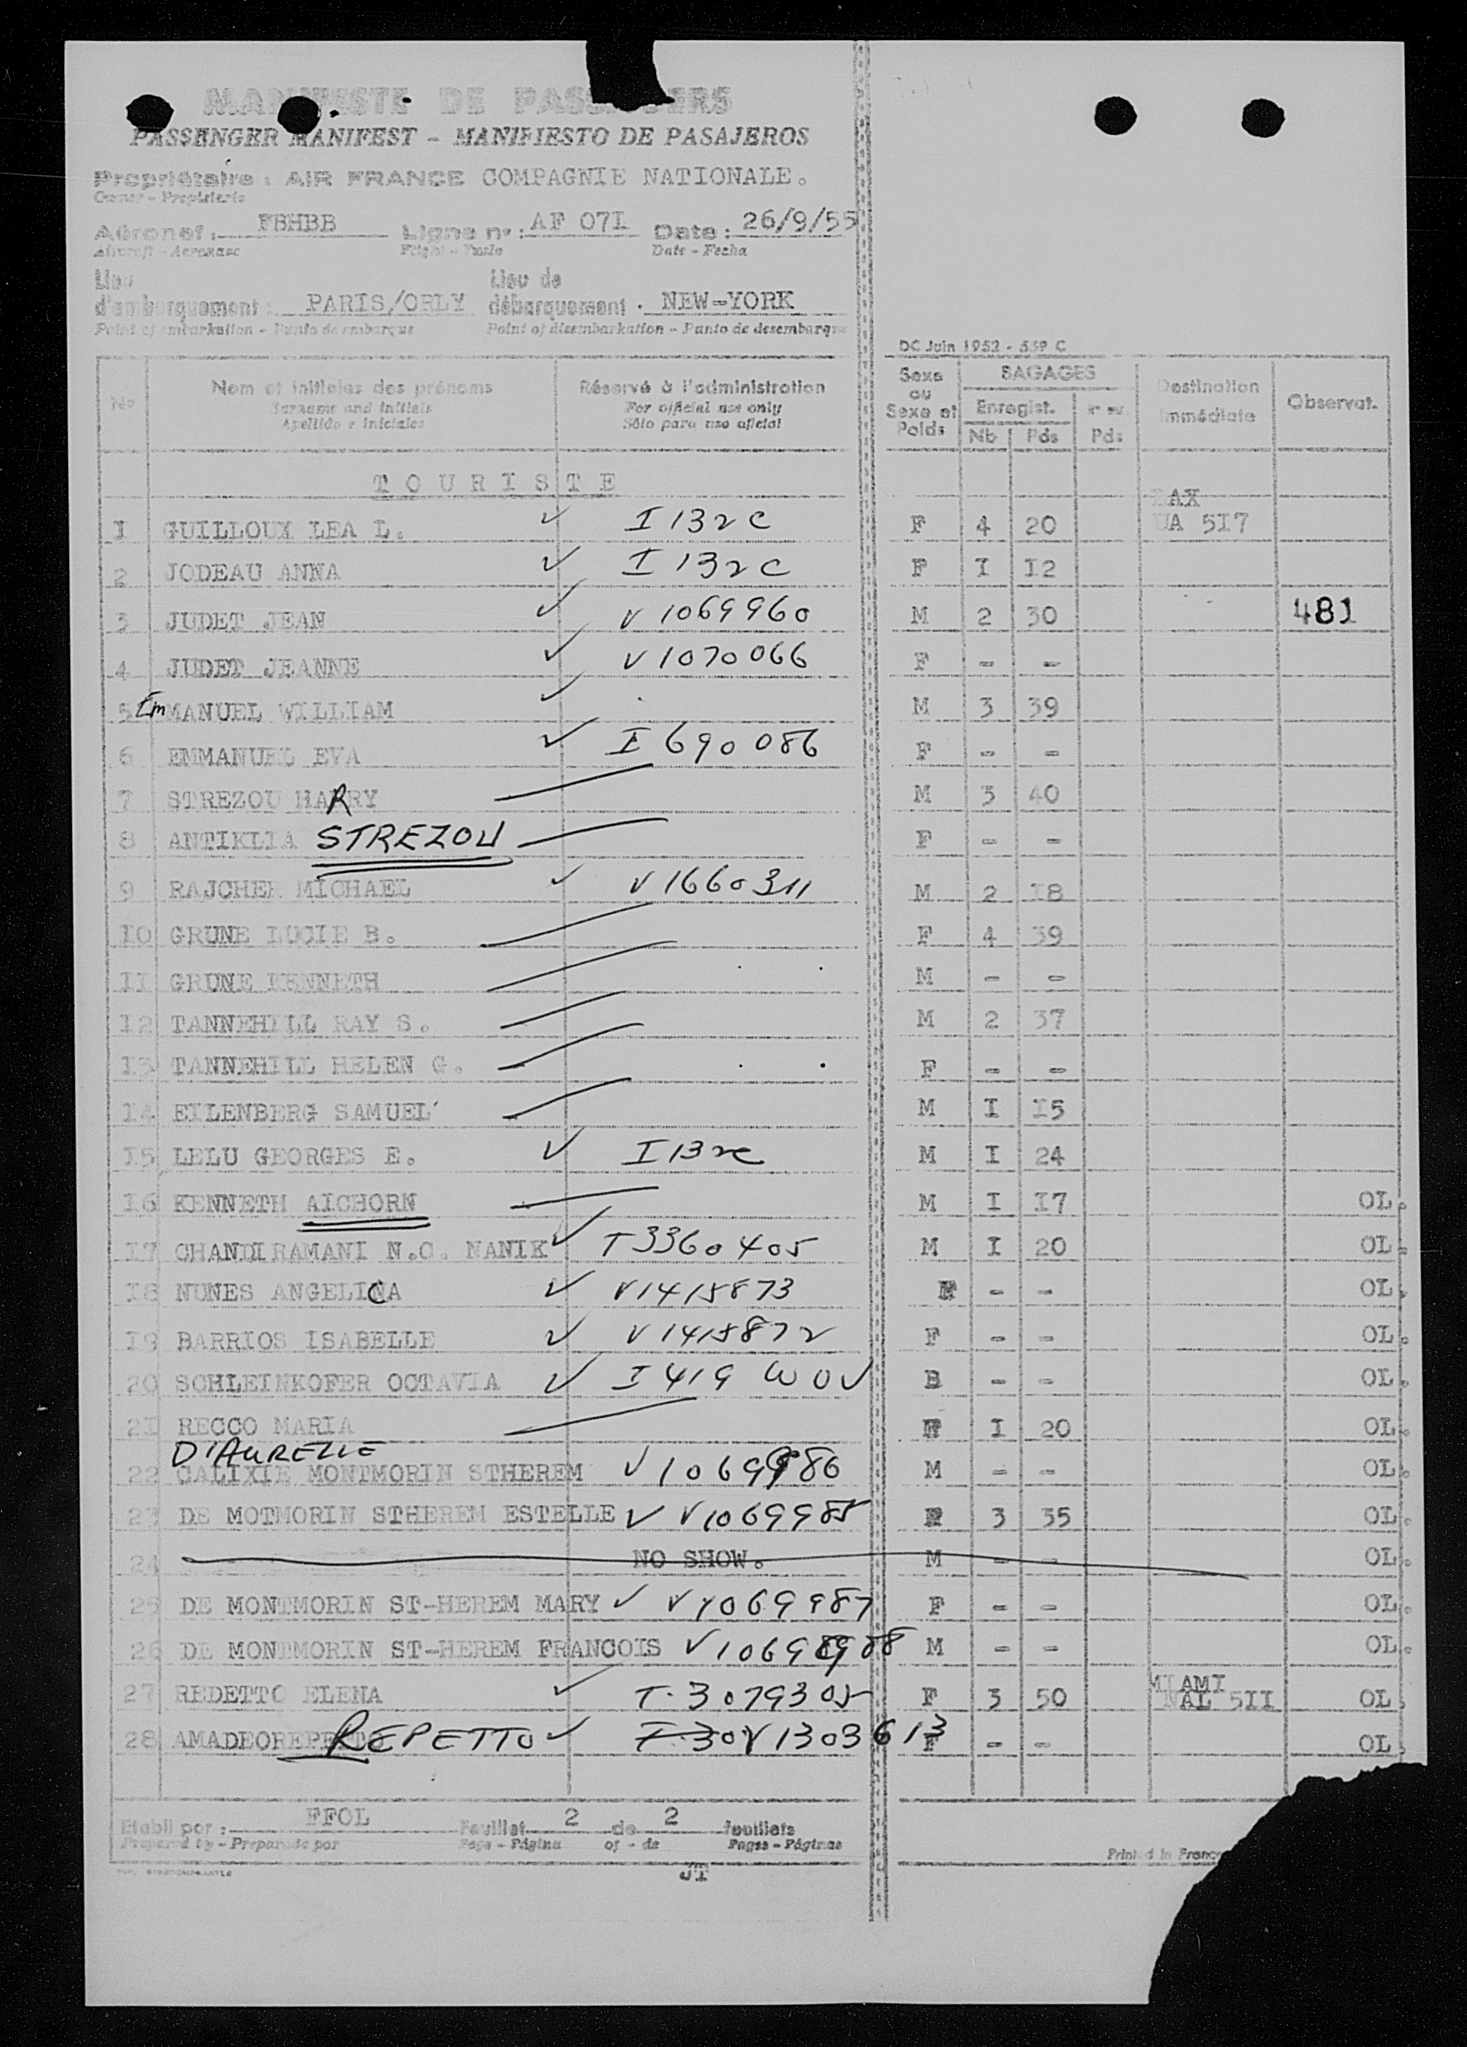 MANIFESTE DE PASSAGERS
PASSENGER MANIFEST - MANIFIESTO DE PASAJEROS
Propriétaire : AIR FRANCE COMPAGNIE NATIONALE.
Owner - Propietario
Aéronef : FBHBB Ligne n° : AF 07I Date : 26/9/55
Aircraft - Aeronave Flight - Vuelo Date - Fecha
Lieu d'embarquement : PARIS/ORLY Lieu de débarquement : NEW-YORK
Point of embarkation - Punto de embarque Point of disembarkation - Punto de desembarque
DC Juin 1952 - 559 C
No Nom et initiales des prénoms Réservé à l'administration Sexe ou Sexe et Poids BAGAGES Destination immédiate Observat.
Surname and initials For official use only Enregist.
Apellido e iniciales Sólo para uso oficial Nb Pds Pds
TOURISTE
LAX
I GUILLOUX LEA L. ✓ I 132 C F 4 20 UA 5I7
2 JODEAU ANNA ✓ I 132 C F I I2
3 JUDET JEAN ✓ V 1069960 M 2 30 481
4 JUDET JEANNE ✓ V 1070066 F - -
5 EmMANUEL WILLIAM ✓ M 3 39
6 EMMANUEL EVA ✓ I 690086 F - -
7 STREZOU HARRY M 3 40
8 ANTIKLIA STREZOU F - -
9 RAJCHER MICHAEL ✓ V 1660311 M 2 I8
IO GRUNE LUCIE B. F 4 39
II GRUNE KENNETH M - -
I2 TANNEHILL RAY S. M 2 37
I3 TANNEHILL HELEN G. F - -
I4 EILENBERG SAMUEL M I I5
I5 LELU GEORGES E. ✓ I 132C M I 24
I6 KENNETH AICHORN M I I7 OL.
I7 CHANDIRAMANI N.O. NANIK ✓ T3360405 M I 20 OL.
I8 NUNES ANGELICA ✓ V1415873 F - - OL.
I9 BARRIOS ISABELLE ✓ V 1415872 F - - OL.
20 SCHLEINKOFER OCTAVIA ✓ I 419 WOV B - - OL.
2I RECCO MARIA F I 20 OL.
D'AURELLE
22 CALIXIE MONTMORIN STHEREM V 1069986 M - - OL.
23 DE MOTMORIN STHEREM ESTELLE ✓ V1069985 F 3 35 OL.
24 NO SHOW. M - - OL.
25 DE MONTMORIN ST-HEREM MARY ✓ V1069987 F - - OL.
26 DE MONTMORIN ST-HEREM FRANCOIS V 988 M - - OL.
27 REDETTO ELENA ✓ T-3079305 F 3 50 MIAMI NAL 5II OL.
28 AMADEO REPETTO ✓ V1303613 F - - OL.
Etabli par : FFOL Feuillet 2 de 2 feuillets
Prepared by - Preparado por Page - Página of - de Pages - Páginas
Printed in France
JT